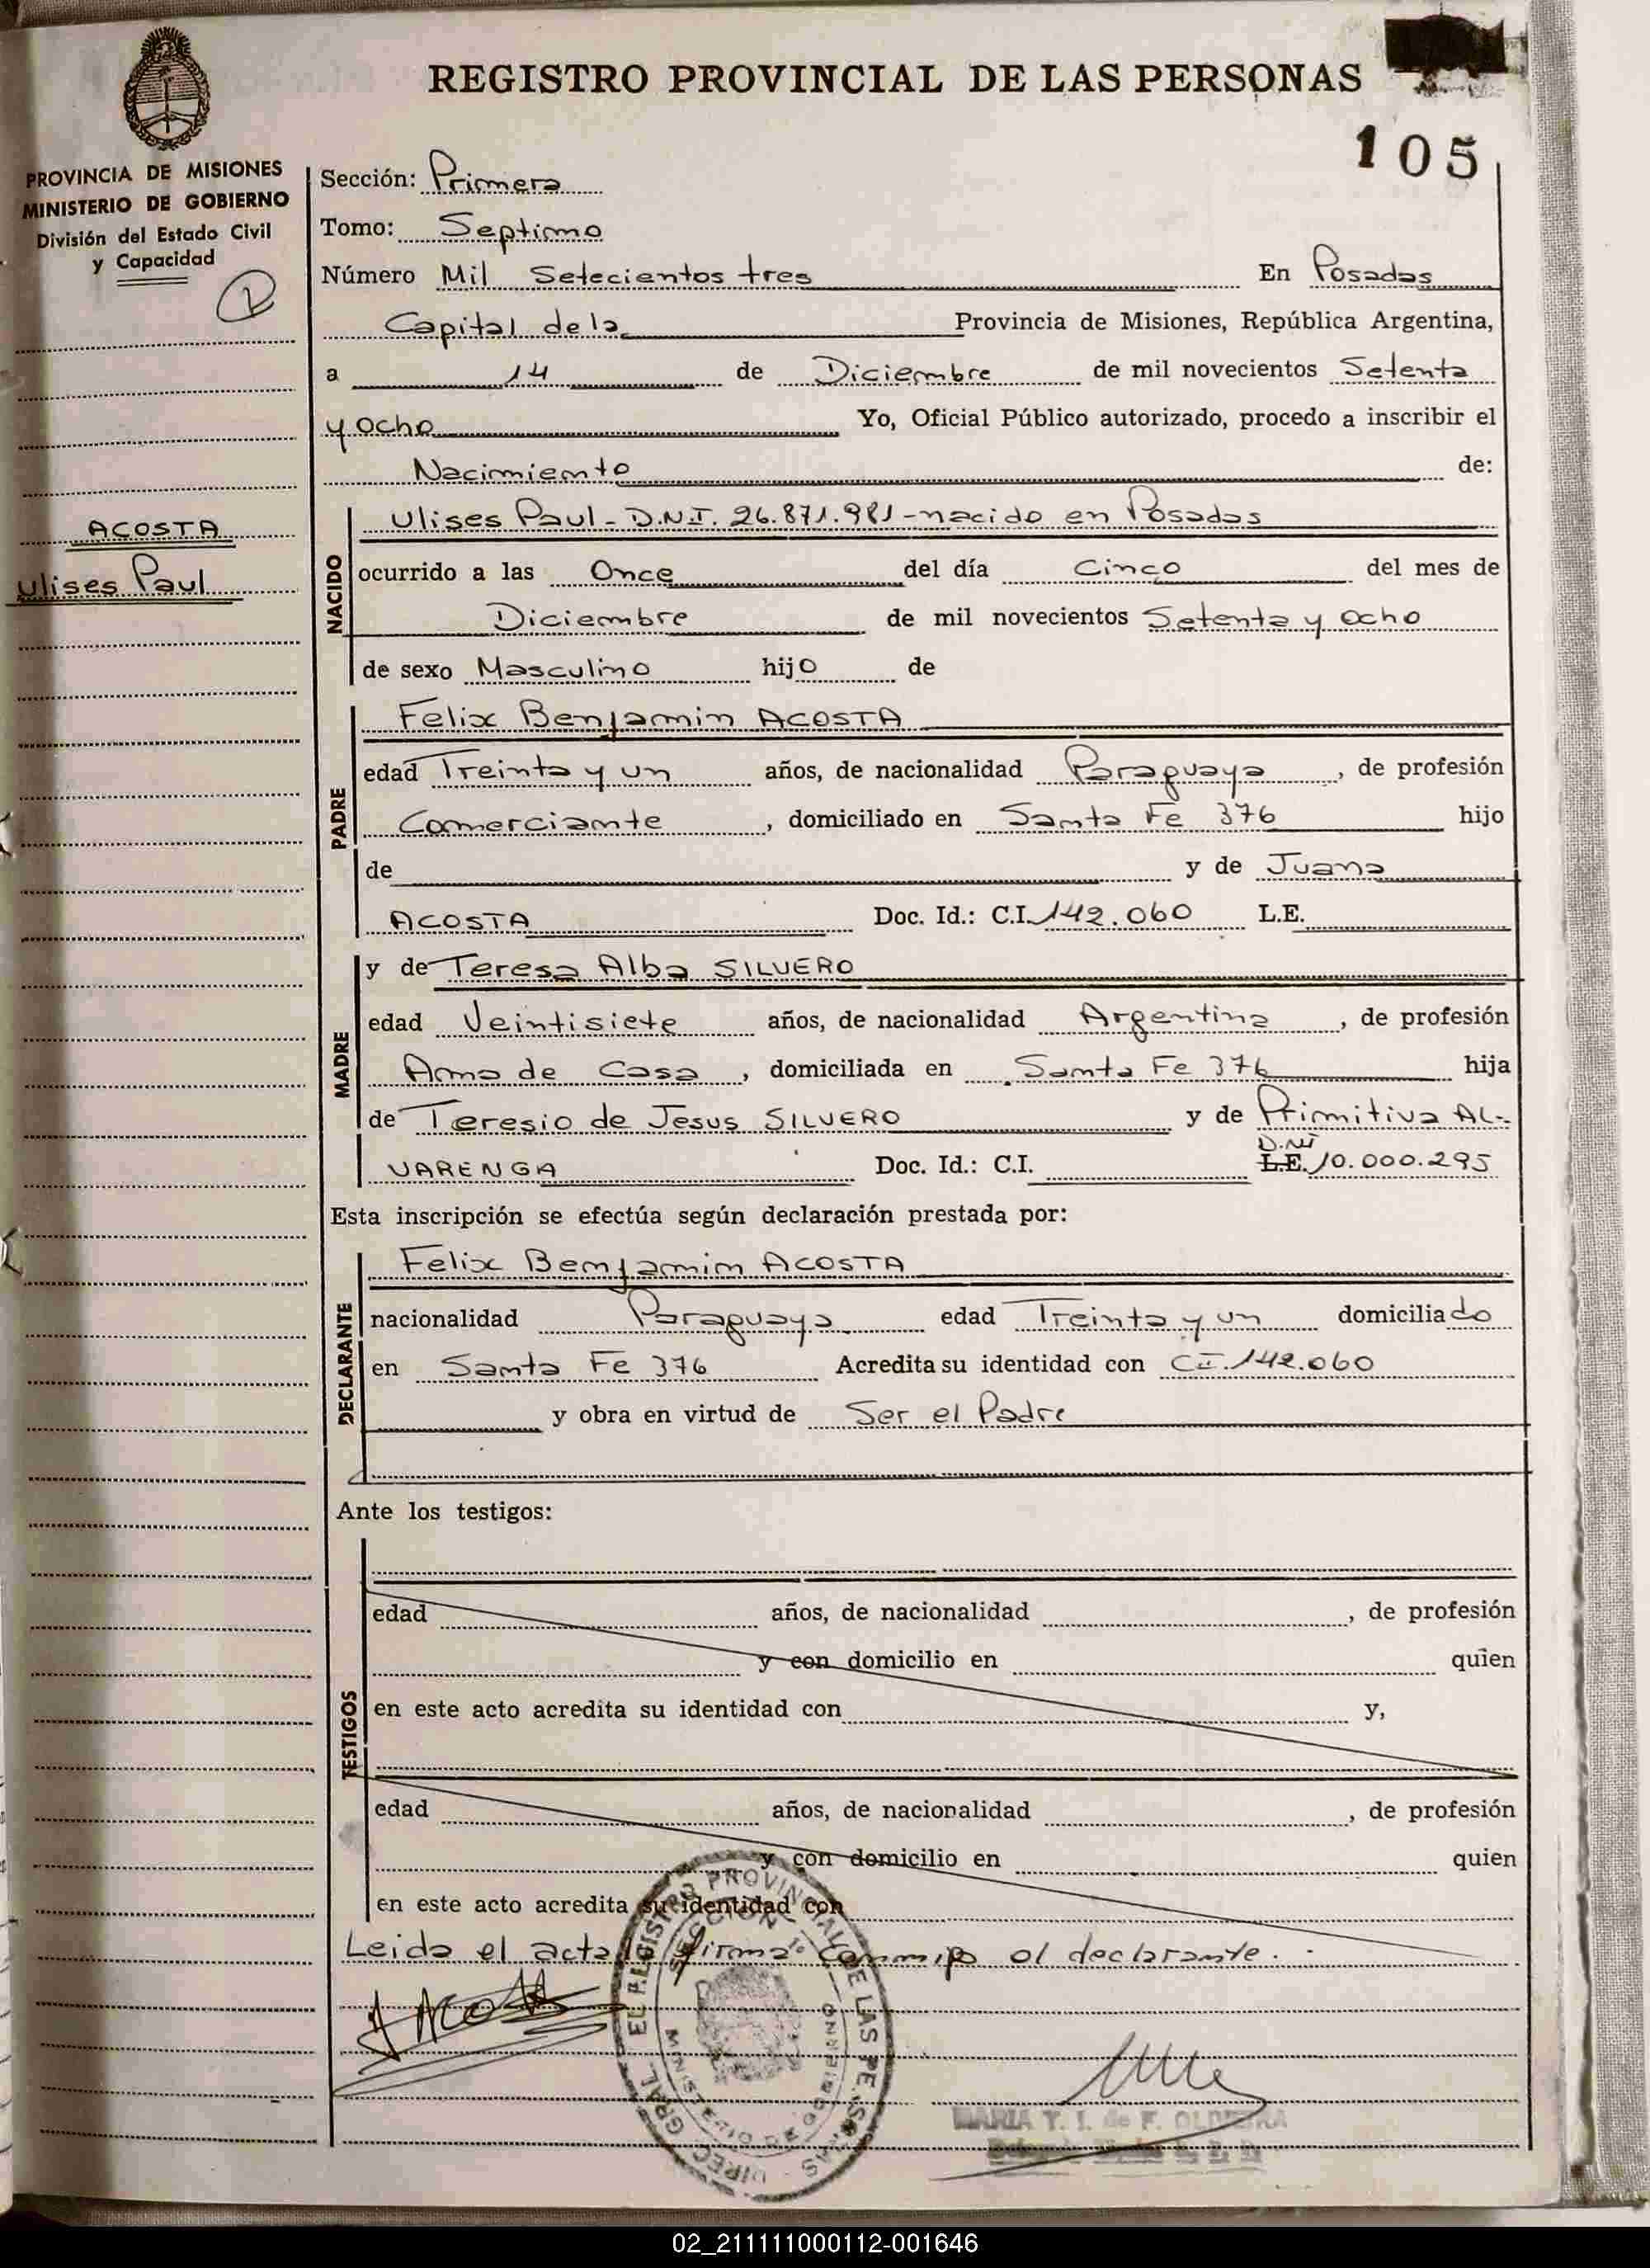 REGISTRO PROVINCIAL DE LAS PERSONAS
105
PROVINCIA DE MISIONES
MINISTERIO DE GOBIERNO
División del Estado Civil
y Capacidad
ACOSTA
Ulises Paul
Sección: Primera
Tomo: Septimo
Número Mil Setecientos tres En Posadas
Capital de la Provincia de Misiones, República Argentina,
a 14 de Diciembre de mil novecientos Setenta
y ocho Yo, Oficial Público autorizado, procedo a inscribir el
Nacimiento de:
NACIDO
Ulises Paul - D.N.I. 26.871.981 - nacido en Posadas
ocurrido a las Once del día Cinco del mes de
Diciembre de mil novecientos Setenta y ocho
de sexo Masculino hijo de
PADRE
Felix Benjamin ACOSTA
edad Treinta y un años, de nacionalidad Paraguaya, de profesión
Comerciante, domiciliado en Santa Fe 376 hijo
de y de Juana
ACOSTA Doc. Id.: C.I. 142.060 L.E.
MADRE
y de Teresa Alba SILVERO
edad Veintisiete años, de nacionalidad Argentina, de profesión
Ama de Casa, domiciliada en Santa Fe 376 hija
de Teresio de Jesus SILVERO y de Primitiva AL-
D.NI
VARENGA Doc. Id.: C.I. L.E. 10.000.295
Esta inscripción se efectúa según declaración prestada por:
DECLARANTE
Felix Benjamin ACOSTA
nacionalidad Paraguaya edad Treinta y un domiciliado
en Santa Fe 376 Acredita su identidad con CI. 142.060
y obra en virtud de Ser el Padre
Ante los testigos:
TESTIGOS
edad años, de nacionalidad , de profesión
y con domicilio en quien
en este acto acredita su identidad con y,
edad años, de nacionalidad , de profesión
y con domicilio en quien
en este acto acredita su identidad con
Leida el acta la firma conmigo el declarante.
DIREC. GRAL. EL REGISTRO PROVINCIAL DE LAS PERSONAS
SECCION 1º
MINISTERIO DE GOBIERNO
MARIA T. I. de F.
02_211111000112-001646